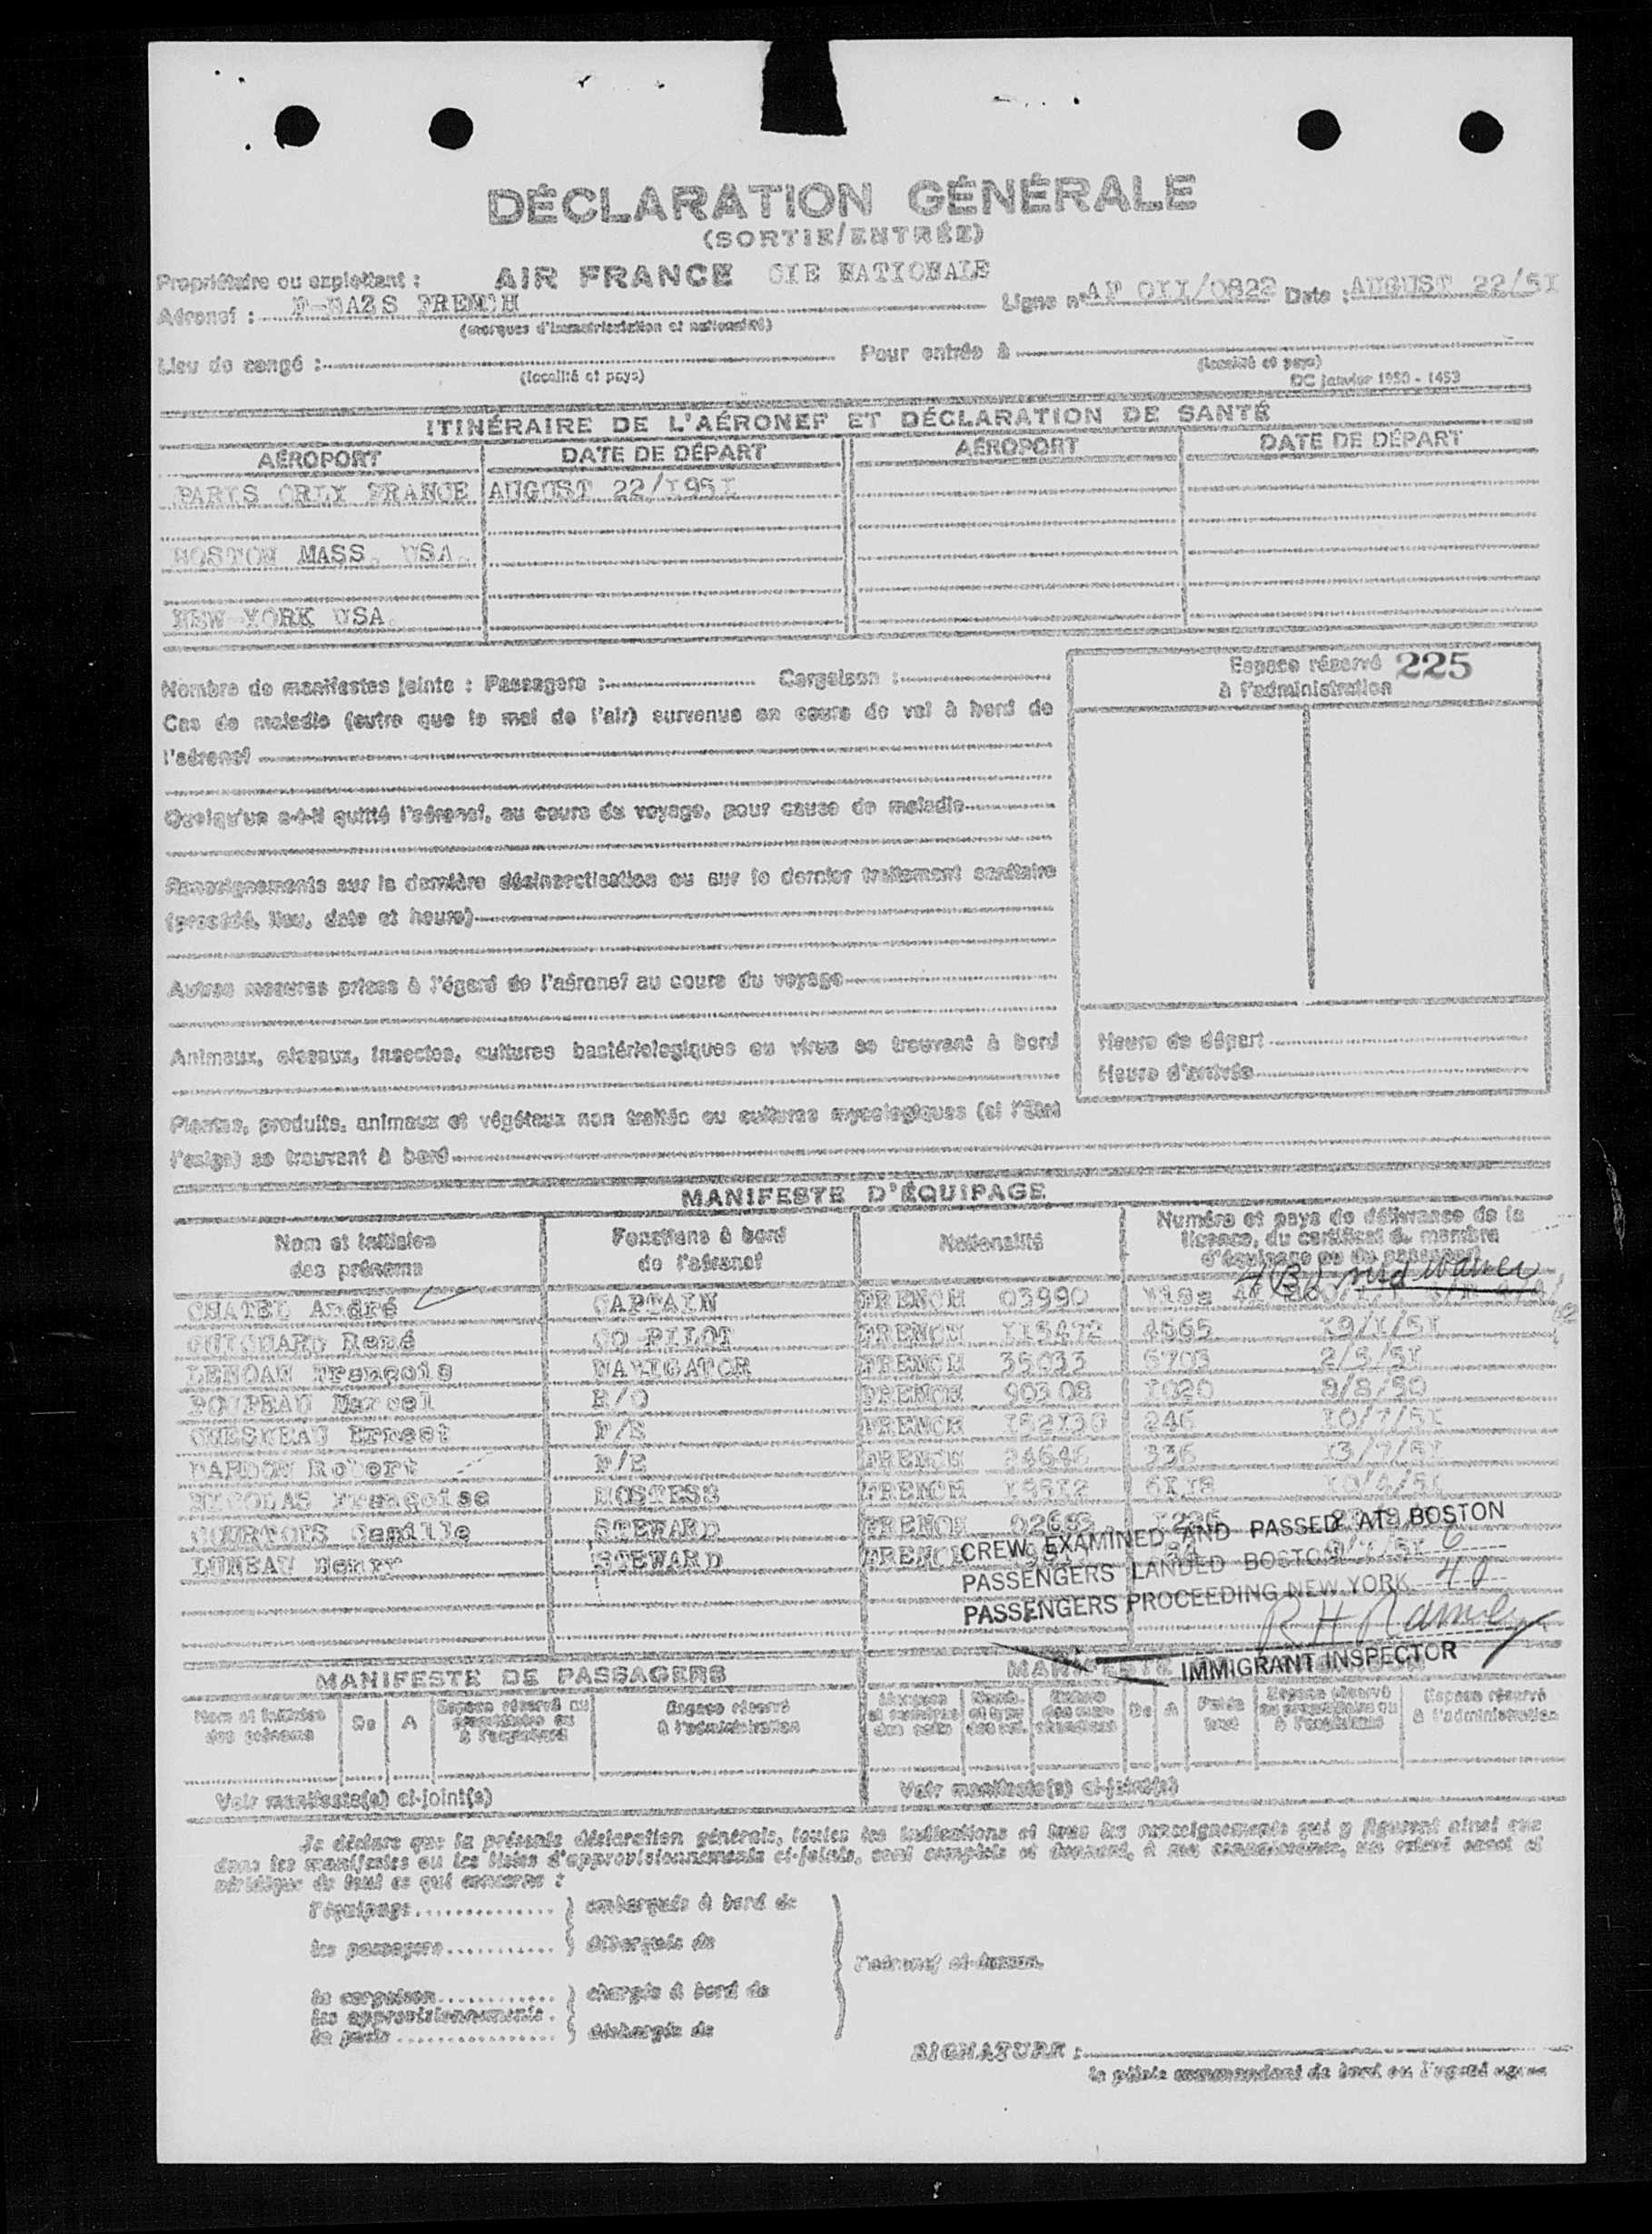 DÉCLARATION GÉNÉRALE
(SORTIE/ENTRÉE)
Propriétaire ou exploitant : AIR FRANCE CIE NATIONALE
Aéronef : F-BAZS FRENCH Ligne n° AF 0II/0822 Date : AUGUST 22/5I
(marques d'immatriculation et nationalité)
Lieu de congé : Pour entrée à
(localité et pays) (localité et pays)
DC janvier 1950 - 1453
ITINÉRAIRE DE L'AÉRONEF ET DÉCLARATION DE SANTÉ
AÉROPORT DATE DE DÉPART AÉROPORT DATE DE DÉPART
PARIS ORLY FRANCE AUGUST 22/I95I
BOSTON MASS. USA.
NEW-YORK USA.
Espace réservé 225
à l'administration
Nombre de manifestes joints : Passagers : Cargaison :
Cas de maladie (autre que le mal de l'air) survenus en cours de vol à bord de
l'aéronef
Quelqu'un a-t-il quitté l'aéronef, au cours du voyage, pour cause de maladie
Renseignements sur la dernière désinsectisation ou sur le dernier traitement sanitaire
(procédé, lieu, date et heure)
Autres mesures prises à l'égard de l'aéronef au cours du voyage
Animaux, oiseaux, insectes, cultures bactériologiques ou virus se trouvant à bord
Heure de départ
Heure d'arrivée
Plantes, produits, animaux et végétaux non traités ou cultures mycologiques (si l'État
l'exige) se trouvant à bord
MANIFESTE D'ÉQUIPAGE
Nom et initiales des prénoms Fonctions à bord de l'aéronef Nationalité Numéro et pays de délivrance de la licence, du certificat de membre d'équipage ou du passeport
CHATEL André CAPTAIN FRENCH 03990 Visa
GUICHARD René CO-PILOT FRENCH II5472 4565 I9/I/5I
LENOAN François NAVIGATOR FRENCH 35033 5703 2/5/5I
POUPEAU Marcel R/O FRENCH 90308 I020 8/8/50
Ernest F/E FRENCH I52I30 246 I0/7/5I
DARDON Robert F/E FRENCH 24646 336 I3/7/5I
NICOLAS Françoise HOSTESS FRENCH I95I2 6II8 I0/4/5I
COURTOIS Camille STEWARD FRENCH 02683
LUNEAU Henry STEWARD FRENCH
CREW EXAMINED AND PASSED AT BOSTON
PASSENGERS LANDED BOSTON 6
PASSENGERS PROCEEDING NEW YORK 40
IMMIGRANT INSPECTOR
MANIFESTE DE PASSAGERS
Nom et initiales des prénoms De A Espace réservé au propriétaire ou à l'exploitant Espace réservé à l'administration
De A Espace réservé au propriétaire ou à l'exploitant Espace réservé à l'administration
Voir manifeste(s) ci-joint(s) Voir manifeste(s) ci-joint(s)
Je déclare que la présente déclaration générale, toutes les indications et tous les renseignements qui y figurent ainsi que
dans les manifestes ou les listes d'approvisionnements ci-joints, sont complets et donnent, à ma connaissance, un relevé exact et
véridique de tout ce qui concerne :
l'équipage embarqués à bord de
les passagers débarqués de
l'aéronef ci-dessus.
la cargaison chargés à bord de
les approvisionnements
la poste déchargés de
SIGNATURE :
le pilote commandant de bord ou l'agent